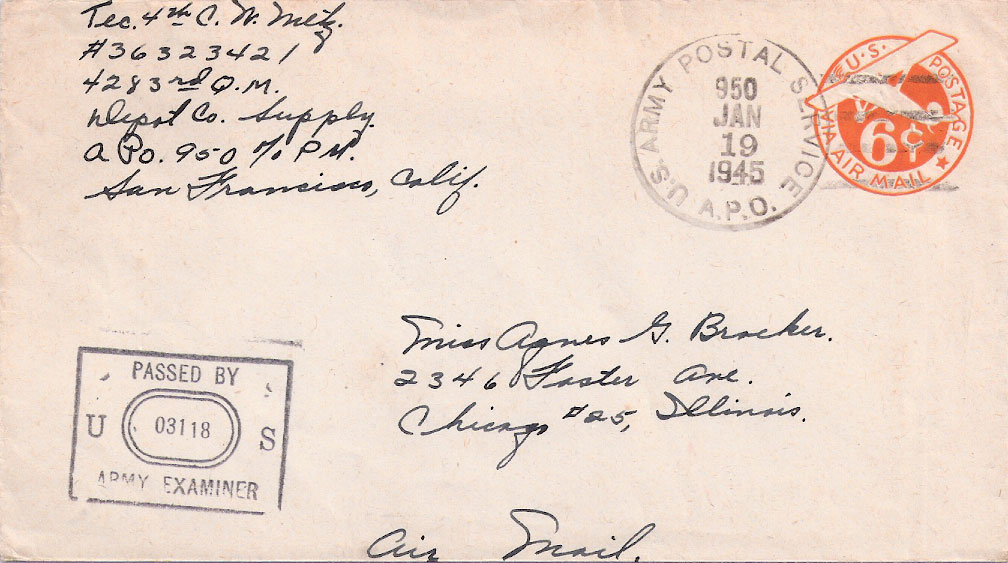 Tec. 4th C. W. Metz.
#36323421
4283rd Q.M.
Depot Co. Supply.
A.P.O. 950 % P.M.
San Francisco, Calif.
U.S. ARMY POSTAL SERVICE
950
JAN
19
1945
A.P.O.
U.S. POSTAGE
VIA AIR MAIL
6¢
Miss Agnes G. Brocker.
2346 Foster Ave.
Chicago #25, Illinois.
PASSED BY
U 03118 S
ARMY EXAMINER
Air Mail.